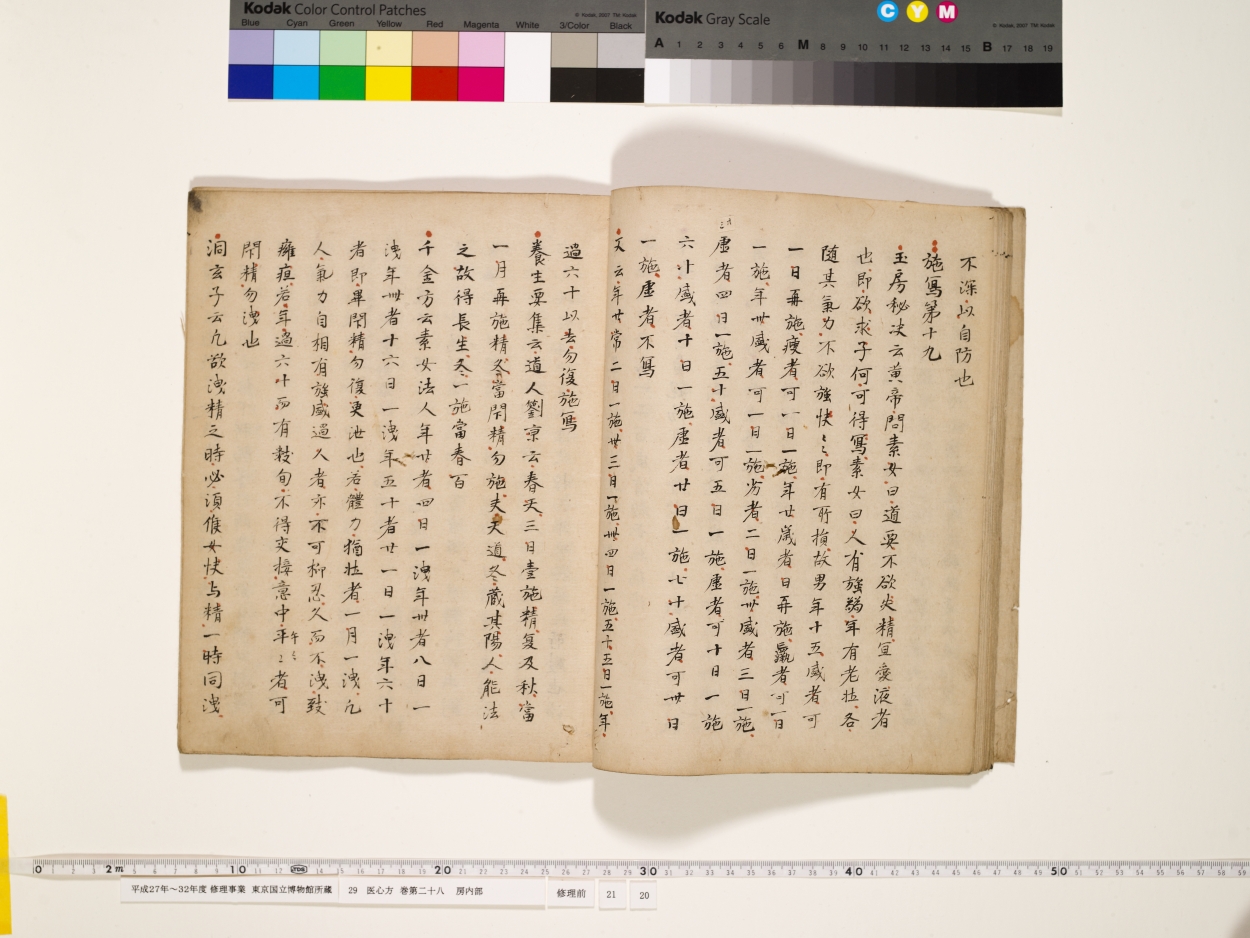 Kodak Color Control Patches
© Kodak, 2007 TM: Kodak
Blue Cyan Green Yellow Red Magenta White 3/Color Black
Kodak Gray Scale
C Y M
© Kodak, 2007 TM: Kodak
A 1 2 3 4 5 6 M 8 9 10 11 12 13 14 15 B 17 18 19
不深以自防也
施寫第十九
玉房秘決云黄帝問素女曰道要不欲失精宜愛液者
也即欲求子何可得寫素女曰人有強弱年有老壮各
随其氣力不欲強快〻即有所損故男年十五盛者可
一日再施瘦者可一日一施年廿歲者日再施羸者可一日
一施年卅盛者可一日一施劣者二日一施卌盛者三日一施
虚者四日一施五十盛者可五日一施虚者可十日一施
六十盛者十日一施虚者廿日一施七十盛者可卅日
一施虚者不寫
又云年廿常二日一施卅三日一施卌四日一施五十五日一施年
過六十以去勿復施寫
養生要集云道人劉京云春天三日壹施精夏及秋當
一月再施精冬當閇精勿施夫天道冬蔵其陽人能法
之故得長生冬一施當春百
千金方云素女法人年廿者四日一洩年卅者八日一
洩年卌者十六日一洩年五十者廿一日一洩年六十
者即畢閇精勿復更泄也若體力猶壮者一月一洩凡
人氣力自相有強盛過人者亦不可抑忍久而不洩致
癰疽若年過六十而有数旬不得交接意中平〻者可
閇精勿洩也
洞玄子云凡欲洩精之時必須候女快与精一時同洩
平成27年～32年度 修理事業 東京国立博物館所蔵 29 医心方 巻第二十八 房内部 修理前 21 20